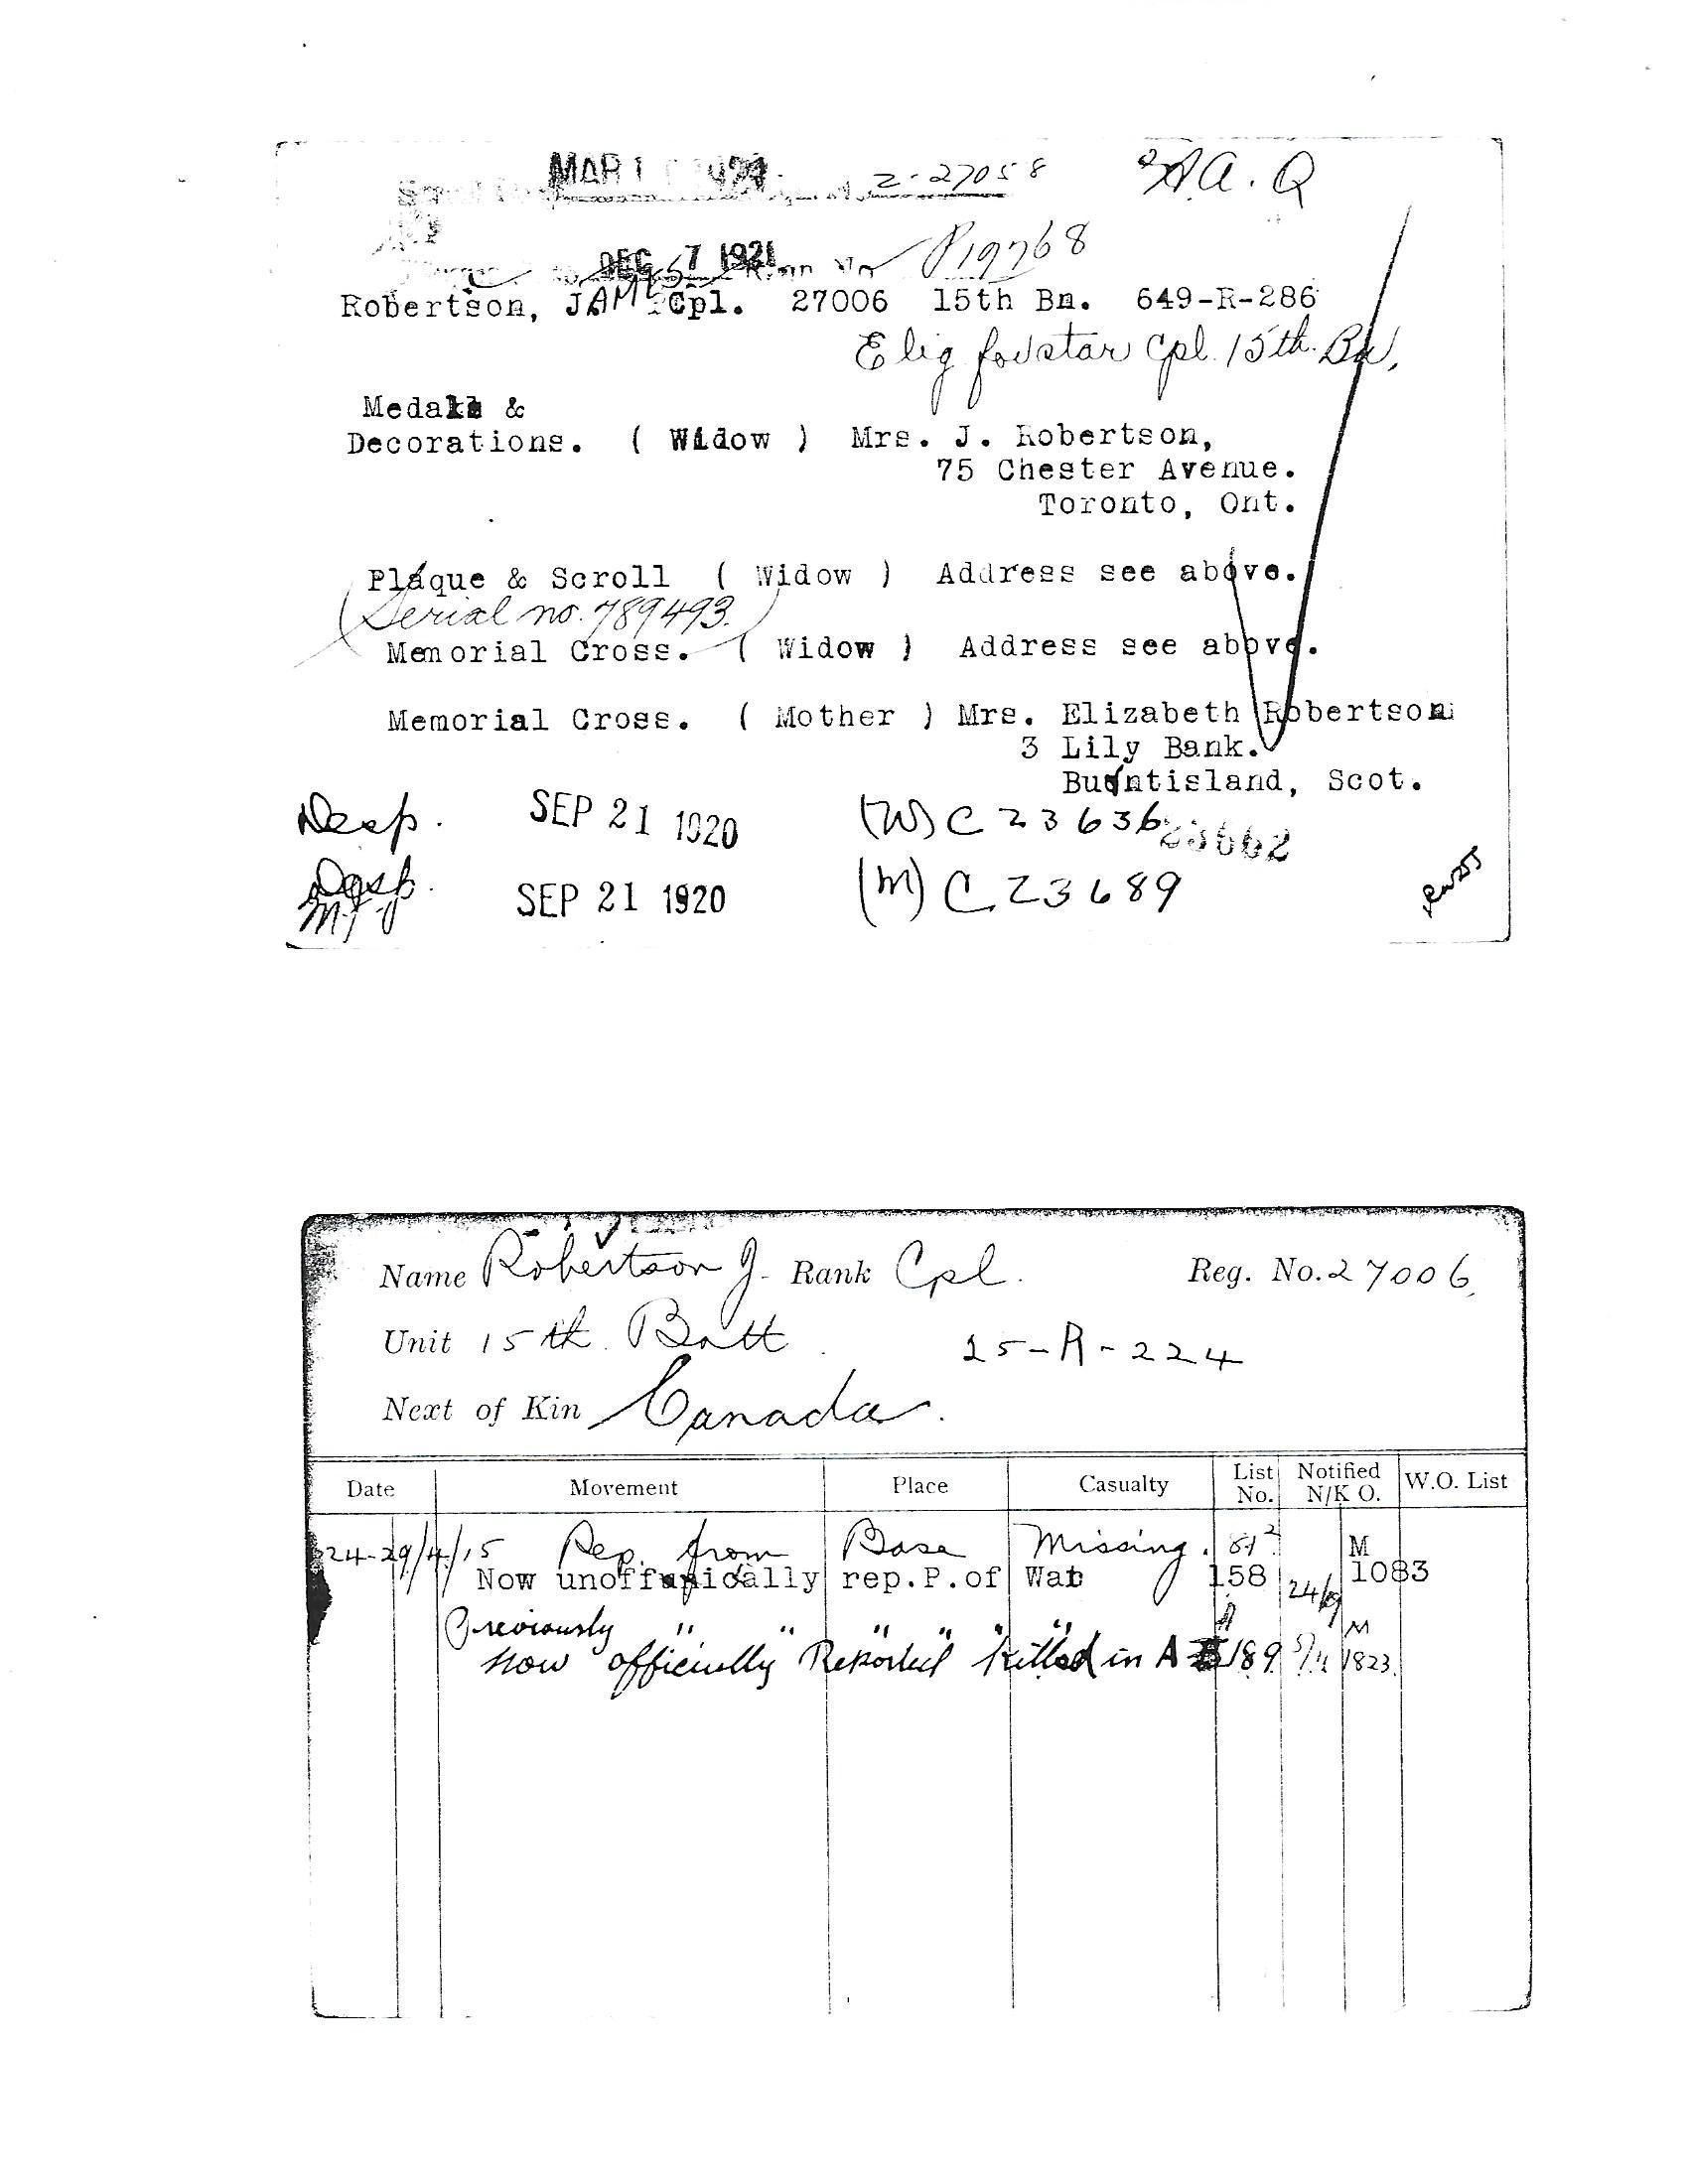 MAR 1
Z-27058
A.Q
DEC 7 1921
P19768
Robertson, JAMES Cpl. 27006 15th Bn. 649-R-286
Elig for star Cpl. 15th. Bn.
Medals &
Decorations. ( Widow ) Mrs. J. Robertson,
75 Chester Avenue.
Toronto, Ont.
Plaque & Scroll ( Widow ) Address see above.
(Serial no. 789493.)
Memorial Cross. ( Widow ) Address see above.
Memorial Cross. ( Mother ) Mrs. Elizabeth Robertson
3 Lily Bank.
Burntisland, Scot.
Desp. SEP 21 1920 (W) C 23636 23662
Desp. SEP 21 1920 (M) C 23689
Name Robertson J. Rank Cpl. Reg. No. 27006
Unit 15th. Batt. 25-R-224
Next of Kin Canada.
Date Movement Place Casualty List No. Notified N/K O. W.O. List
24-29/4/15 Rep. from Base Missing. M
Now unofficially rep. P. of War 158 1083
Previously " " " " " M
Now officially Reported killed in A 189 1823